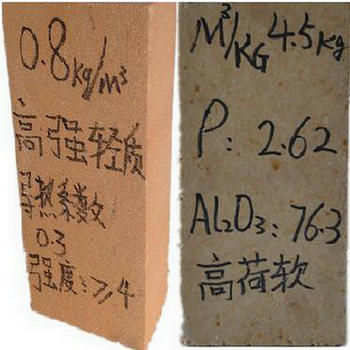 0.8kg/m³
高强轻质
导热系数
0.3
强度:7.4
M³/KG 4.5kg
P: 2.62
Al₂O₃: 76.3
高荷软